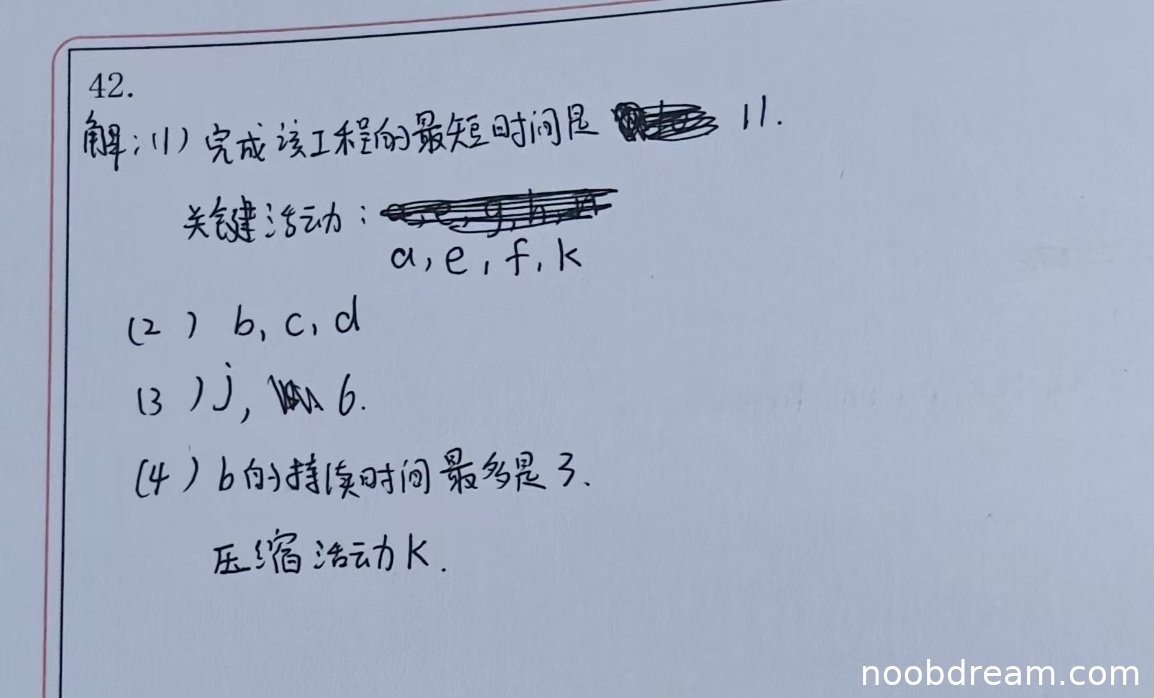 42.
解:(1)完成该工程的最短时间是 11.
关键活动:
a,e,f,k
(2) b,c,d
(3)j, 6.
(4)b的持续时间最多是3.
压缩活动k.
noobdream.com